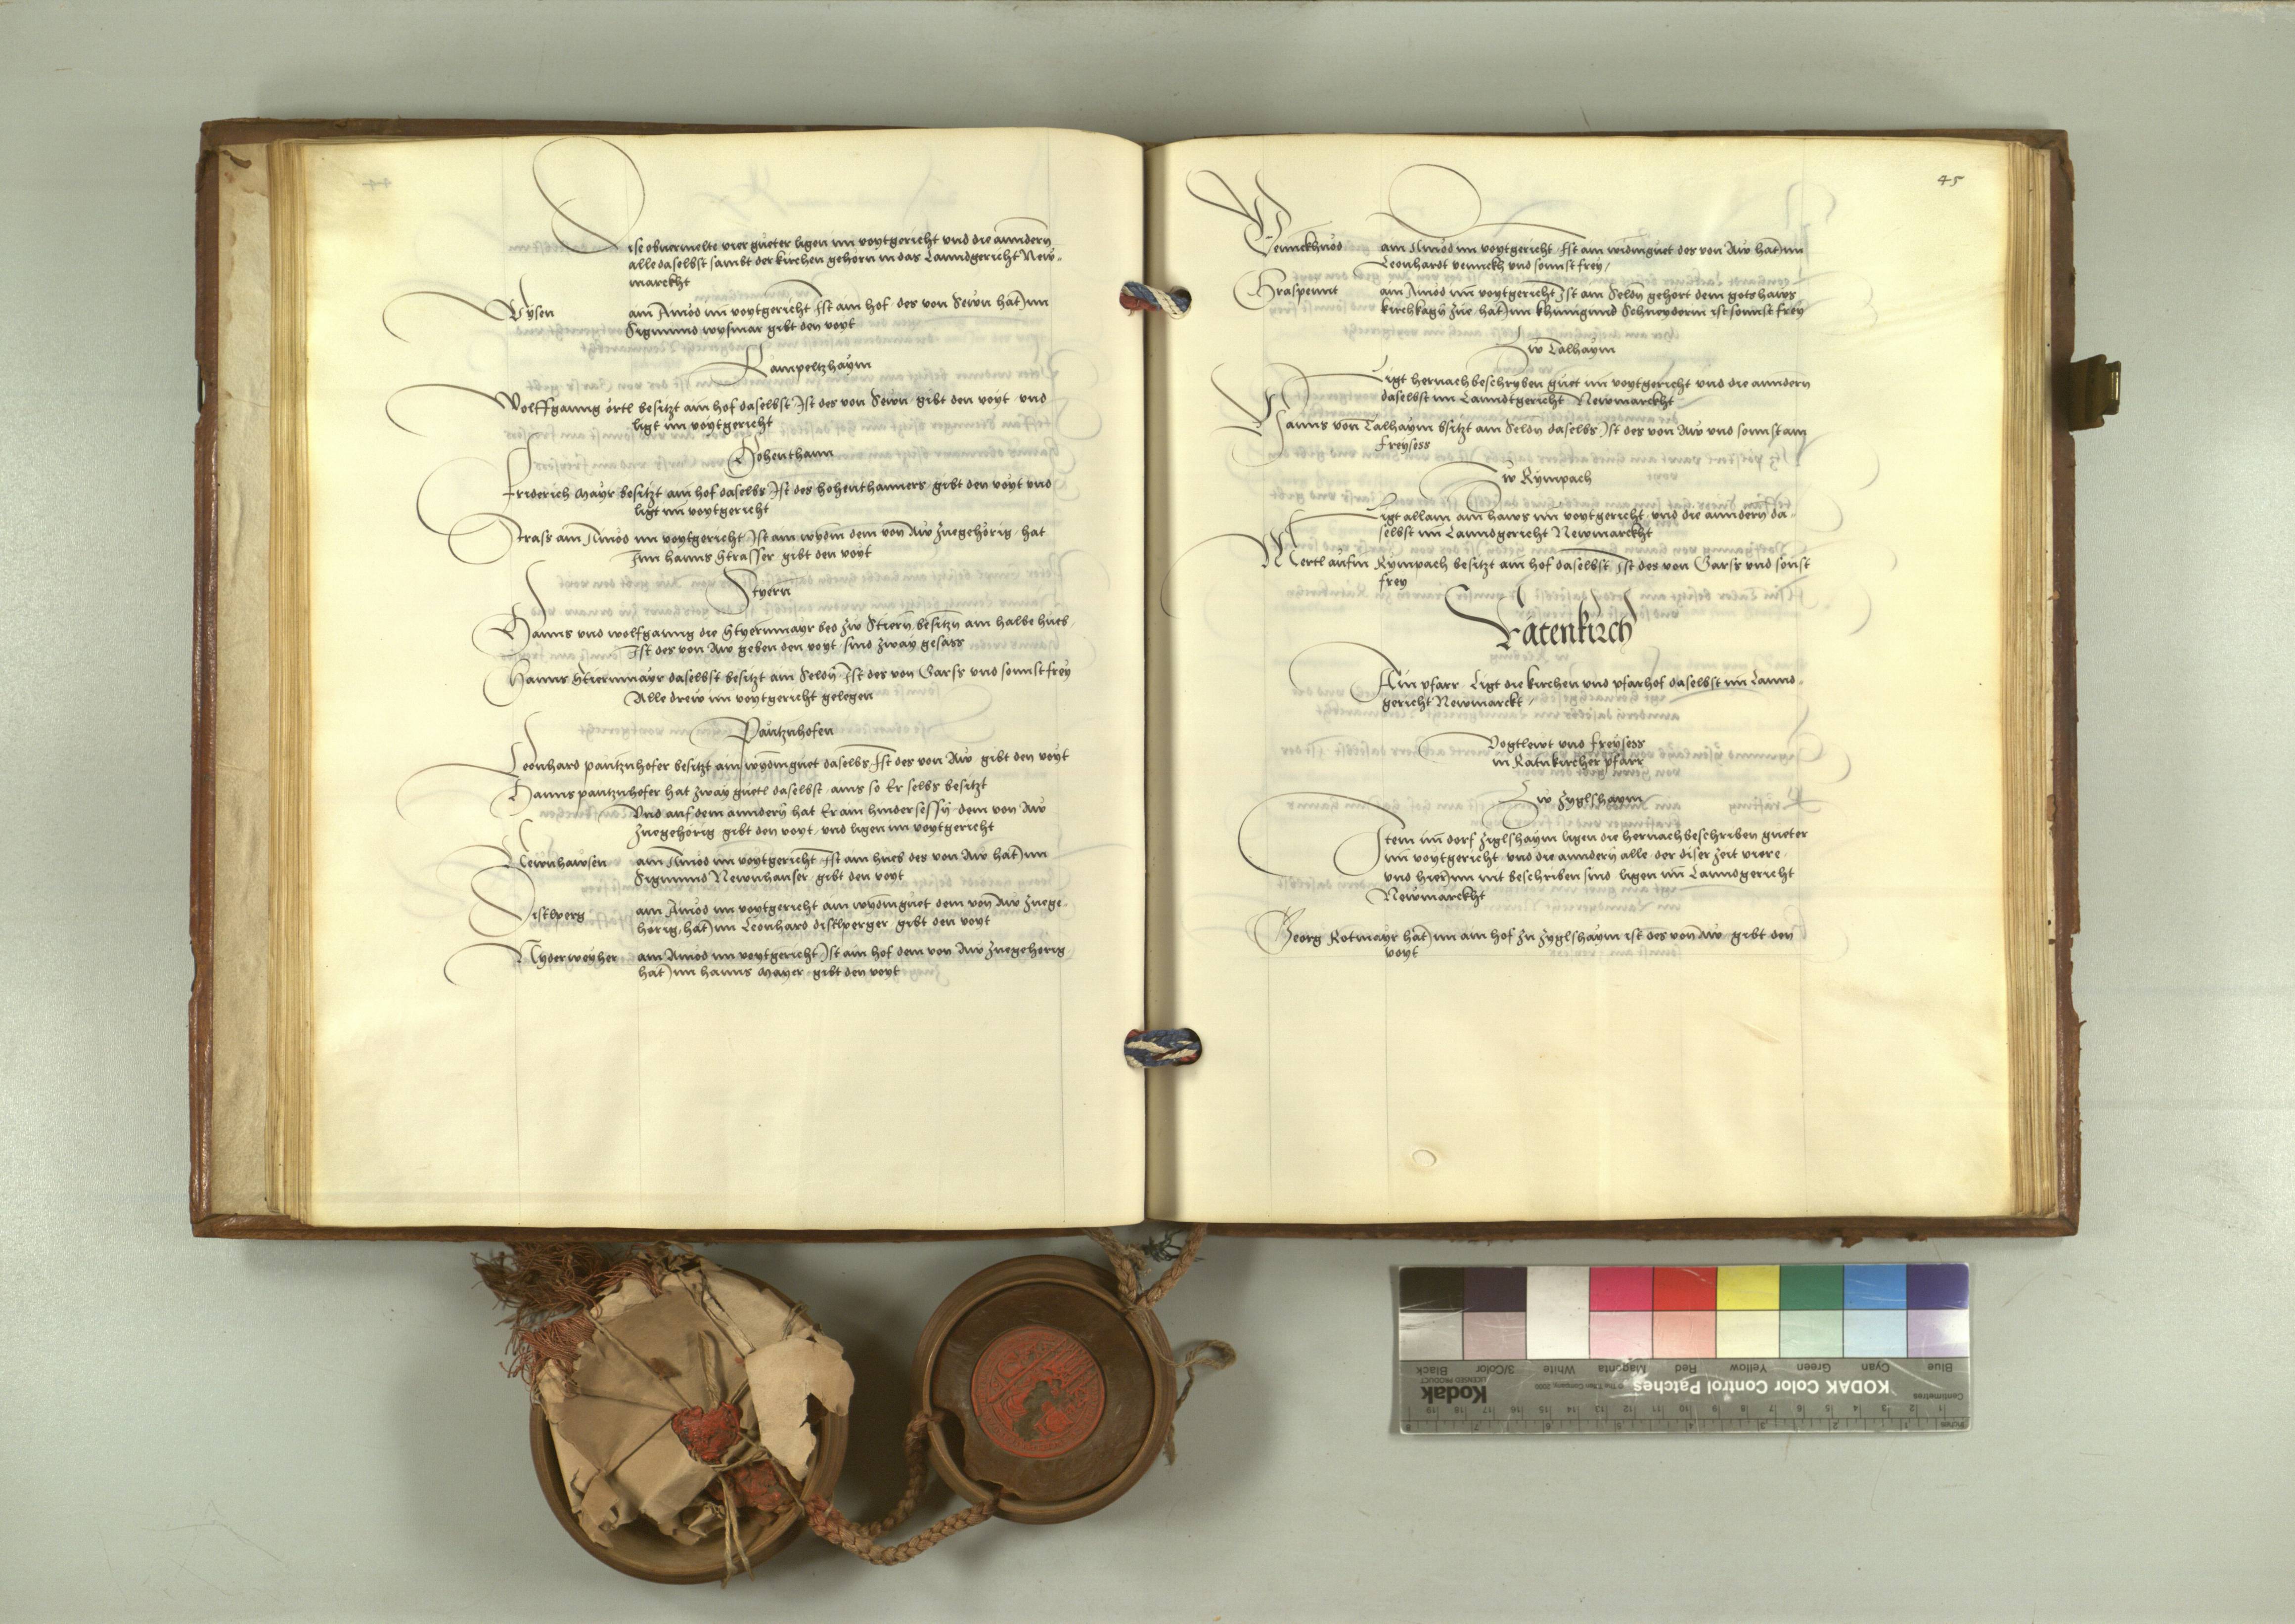 Dise obuermelte vier güeter ligen im voytgericht vnd die anndern
alle daselbst sambt der kirchen gehörn in das Lanndgericht New-
marckht
Wysen ain Ainöd im voytgericht Ist ain hof des von Sewn hat ym
Sigmund wysmar gibt den voyt
Rampeltzhaym
Wolffganng örtl besitzt ain hof daselbst Ist des von Sewn gibt den voyt vnd
ligt im voytgericht
Hohenthann
Friderich Mayr besitzt ain hof daselbs Ist des hohenthanners gibt den voyt vnd
ligt im voytgericht
Strass ain Ainöd im voytgericht Ist ain wydm dem von Aw zuegehörig hat
Inn hanns Strasser gibt den voyt
Styern
Hanns vnd wolfganng die Styernmayr bed zw Stiern besitzn ain halbe hueb
Ist des von Aw geben den voyt sind zway gesäss
Hanns Stiernmayr daselbst besitzt ain Seldn Ist des von Garss vnd sonnst frey
Alle drew im voytgericht gelegen
Pantznhofen
Leonhard pantznhofer besitzt ain wydmguet daselbs Ist des von Aw gibt den voyt
Hanns pantznhofer hat zway guetl daselbst ains so Er selbs besitzt
Vnd auf dem anndern hat Er ain hindersessn dem von Aw
zuegehörig gibt den voyt vnd ligen im voytgericht
Newnhawsen ain Ainöd im voytgericht Ist ain hueb des von Aw hat ym
Sigmund Newnhauser gibt den voyt
Distlperg ain Ainöd im voytgericht ain wydmguet dem von Aw zuege-
hörig hat ym Leonhard distlperger gibt den voyt
Nyderweyher ain Ainöd im voytgericht Ist ain hof dem von Aw zuegehörig
hat ym hanns Mayer gibt den voyt
45
Vennckhnöd ain Ainöd im voytgericht Ist ain widmguet des von Aw hat ym
Leonhardt vennckh vnd sonnst frey
Graspennt ain Ainöd im voytgericht Ist ain Seldn gehört dem gotshaws
kirchkagn zue hat ym khunigund Schneyderin ist sonnst frey
Zw Talhaym
Ligt hernach beschryben guet im voytgericht vnd die anndern
daselbst im Lanndtgericht Newmarckht
Hanns von Talhaym bsitzt ain Seldn daselbs Ist des von Aw vnd sonnst ain
freysess
Zw Rympach
Ligt allain ain haws im voytgericht vnd die anndern da-
selbst im Lanndgericht Newmarckht
Mertl aufm Rympach besitzt ain hof daselbst Ist des von Garss vnd sonst
frey
Rätenkirch
Ain pfarr Ligt die kirchen vnd pfarhof daselbst im Lannd-
gericht Newmarckt
Vogtlewt vnd freysess
in Ratnkircher pfarr
Zw Zyglshaym
Item im dorf Ziglshaym ligen die hernachbeschriben gueter
im voytgericht vnd die anndern alle der diser zeit viere
vnd hierynn nit beschriben sind ligen im Lanndgericht
Newmarckht
Georg Rotmayr hat ym ain hof zu Zyglshaym ist des von Aw gibt den
voyt
KODAK Color Control Patches
Kodak
LICENSED PRODUCT
© The Tiffen Company, 2000
Blue Cyan Green Yellow Red Magenta White 3/Color Black
Centimetres
Inches